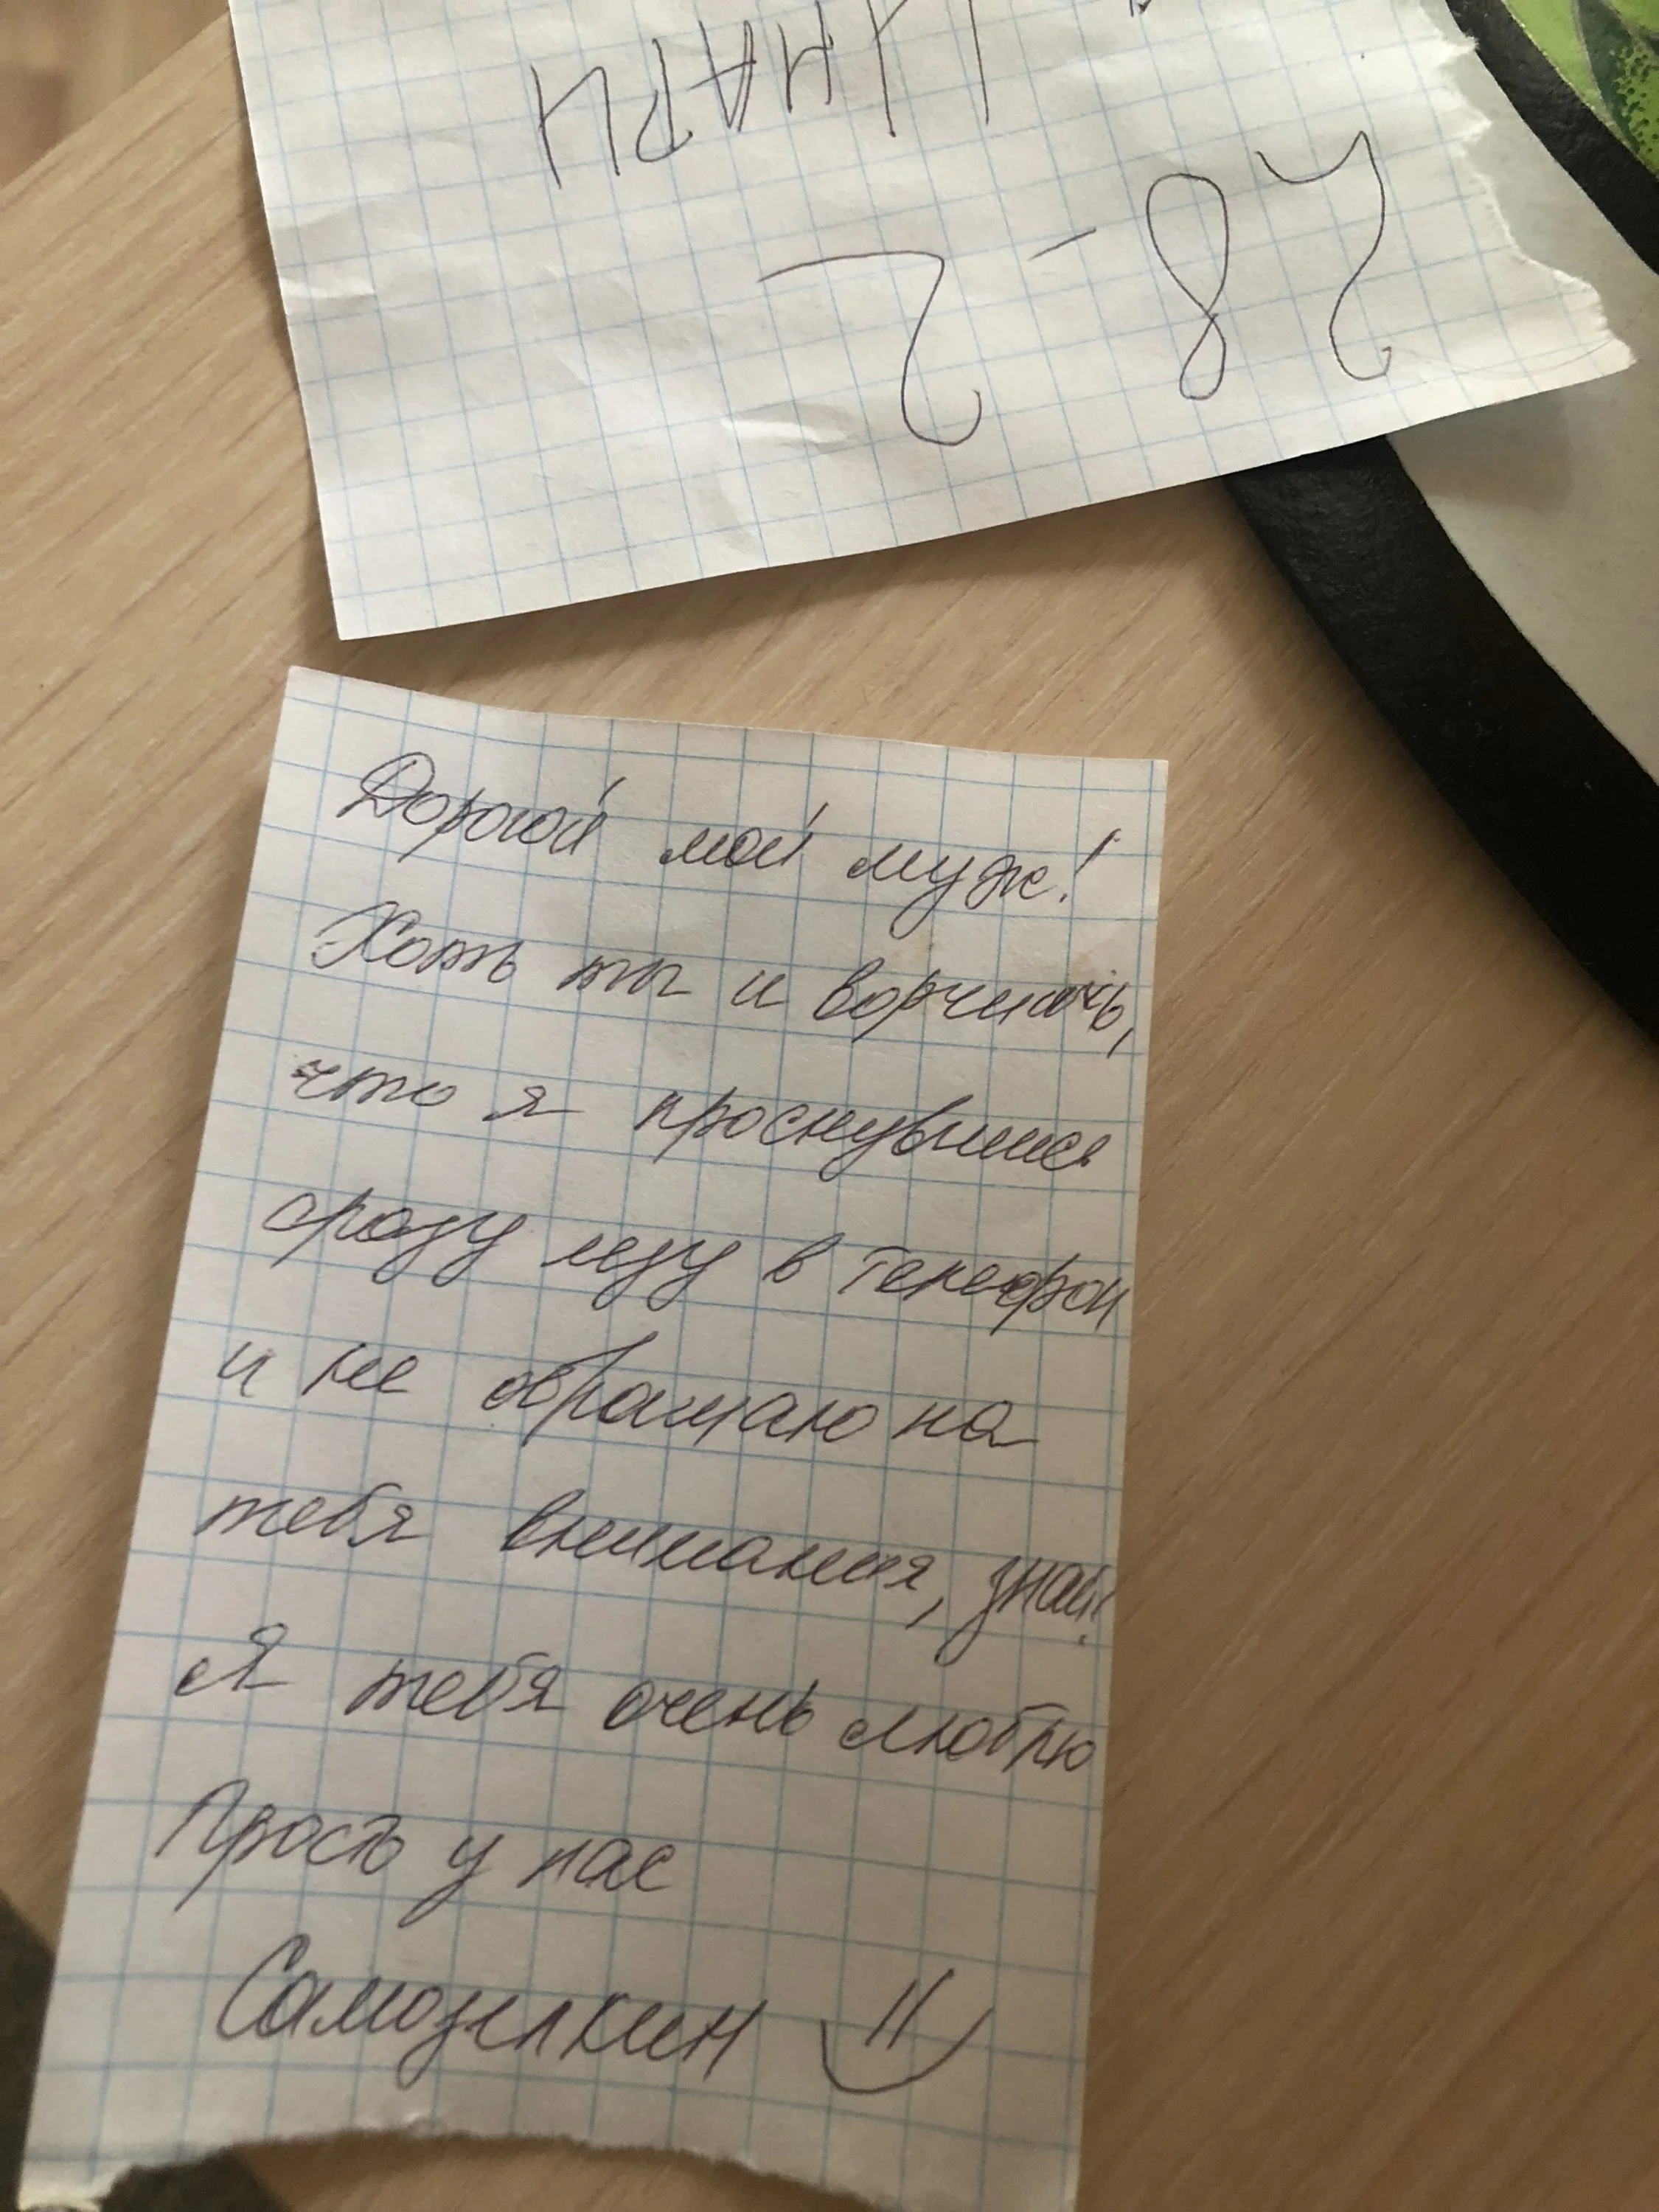 28-2
Дорогой мой муж!
Хоть ты и ворчишь,
что я проснувшись
сразу лезу в телефон
и не обращаю на
тебя внимания, знай!
Я тебя очень люблю
Прость у нас
Самозелкин